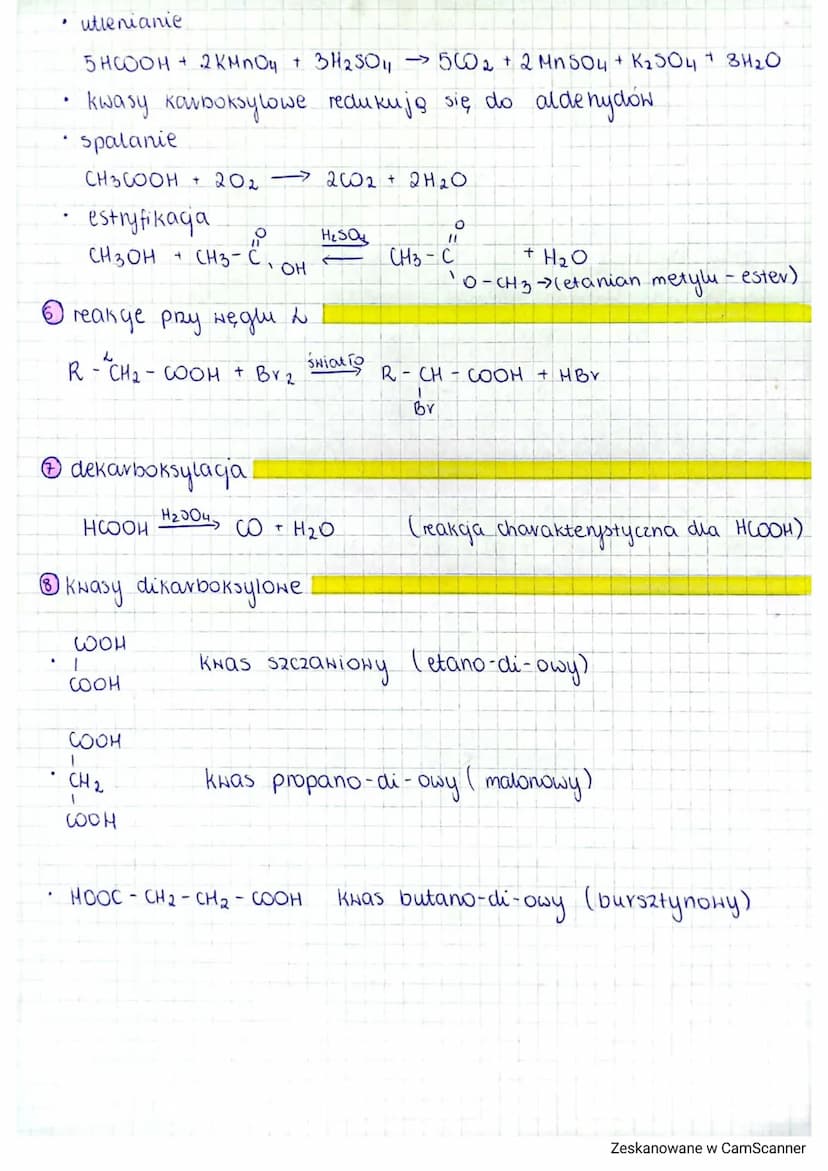 • utlenianie
5HCOOH + 2KMnO4 + 3H2SO4 → 5CO2 + 2MnSO4 + K2SO4 + 8H2O
• kwasy karboksylowe redukują się do aldehydów
• spalanie
CH3COOH + 2O2 → 2CO2 + 2H2O
• estryfikacja
O O
CH3OH + CH3-C H2SO4 ⇌ CH3-C + H2O
OH O-CH3 → (etanian metylu - ester)
6 reakcje przy węglu α
R - αCH2 - COOH + Br2 światło → R - CH - COOH + HBr
Br
7 dekarboksylacja
HCOOH H2SO4 → CO + H2O (reakcja charakterystyczna dla HCOOH)
8 kwasy dikarboksylowe
COOH
• | kwas szczawiowy (etano-di-owy)
COOH
COOH
|
• CH2 kwas propano-di-owy (malonowy)
|
COOH
• HOOC - CH2 - CH2 - COOH kwas butano-di-owy (bursztynowy)
Zeskanowane w CamScanner